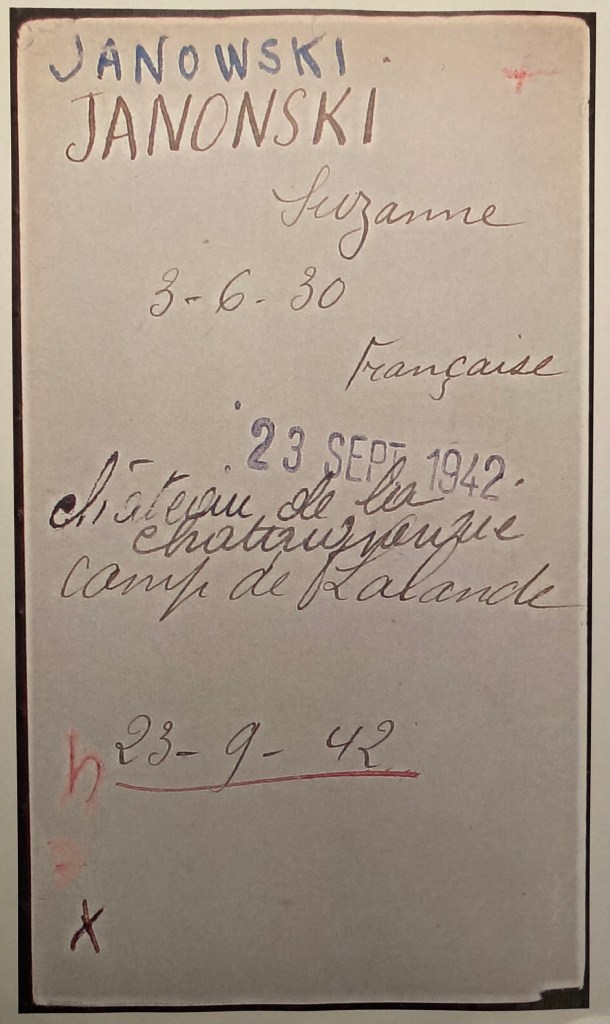 JANOWSKI
JANONSKI
Suzanne
3-6-30
Française
23 SEPT 1942
château de la
chataigneraie
camp de Lalande
23-9-42
h
X